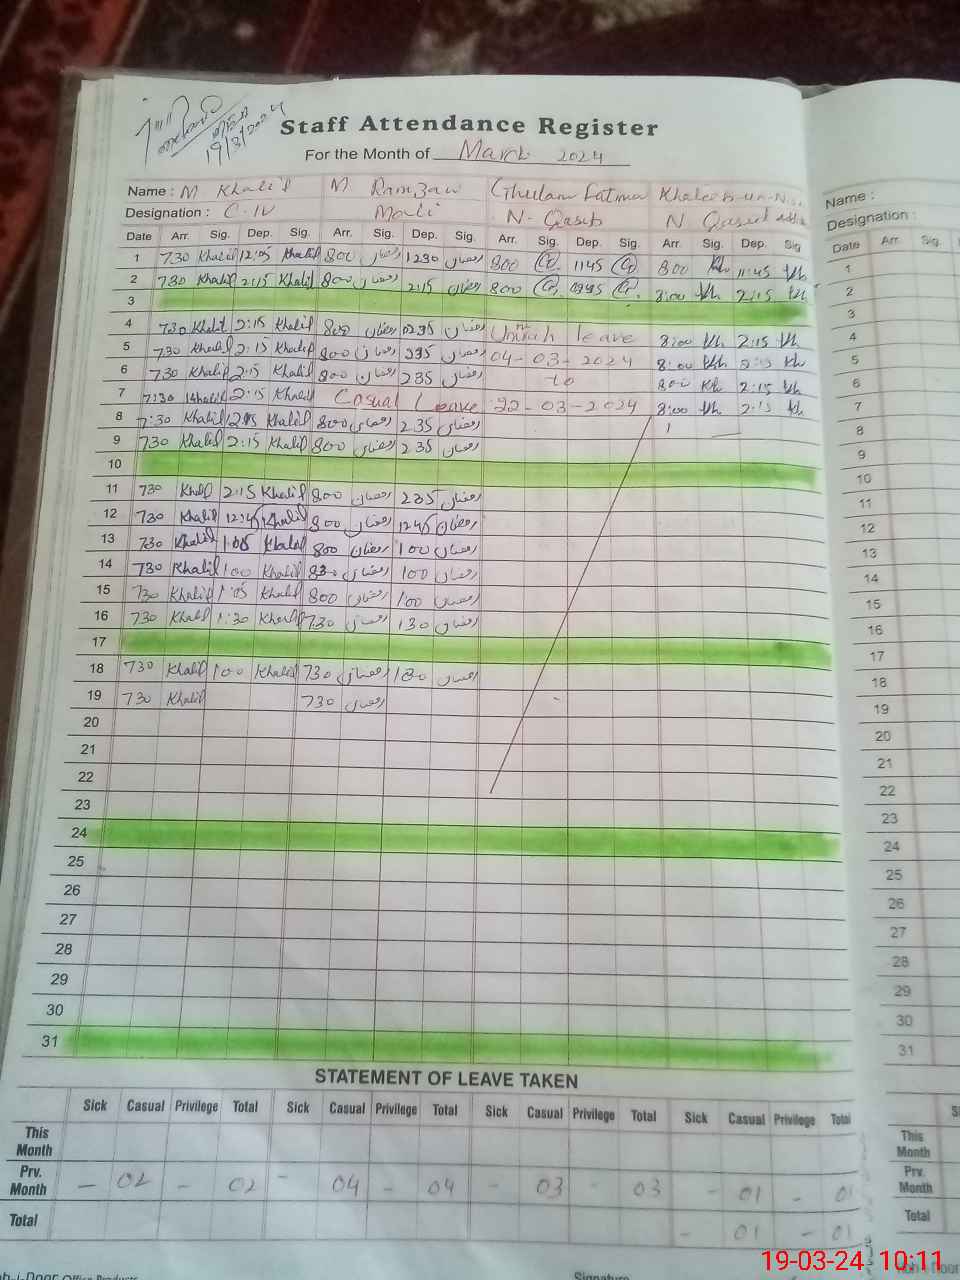 19/3/2024
Staff Attendance Register
For the Month of March 2024
Name : M Khalil M Ramzan Ghulam Fatma
Designation : C-IV Mali N-Qasib N
Date Arr. Sig. Dep. Sig. Arr. Sig. Dep. Sig. Arr. Sig. Dep. Sig. Arr. Sig. Dep. Sig
1 730 Khalil 12:05 Khalil 800 رمضان 1230 رمضان 800 1145 800 Kh 11:45 Kh
2 730 Khalil 2:15 Khalil 800 رمضان 215 رمضان 800 8:00 Kh 2:15 Kh
3
4 730 Khalil 2:15 Khalil 800 رمضان 0235 رمضان leave 8:00 Kh 2:15 Kh
5 730 Khalil 2:15 Khalil 800 رمضان 235 رمضان 04-03-2024 8:00 Kh 2:15 Kh
6 730 Khalil 2:15 Khalil 800 رمضان 235 رمضان to 800 Kh 2:15 Kh
7 7:30 Khalil 2:15 Khalil Casual Leave 22-03-2024 8:00 Kh 2:15 Kh
8 7:30 Khalil 12:05 Khalil 800 رمضان 2.35 رمضان 1 —
9 730 Khalil 2:15 Khalil 800 رمضان 235 رمضان
10
11 730 Khalil 2:15 Khalil 800 رمضان 235 رمضان
12 730 Khalil 12:45 Khalil 800 رمضان 1245 رمضان
13 730 Khalil 1:05 Khalil 800 رمضان 100 رمضان
14 730 Khalil 100 Khalil 830 رمضان 100 رمضان
15 730 Khalil 1:05 Khalil 800 رمضان 100 رمضان
16 730 Khalil 1:30 Khalil 730 رمضان 130 رمضان
17
18 730 Khalil 100 Khalil 730 رمضان 100 رمضان
19 730 Khalil 730 رمضان
20
21
22
23
24
25
26
27
28
29
30
31
STATEMENT OF LEAVE TAKEN
Sick Casual Privilege Total Sick Casual Privilege Total Sick Casual Privilege Total Sick Casual Privilege Total
This Month
Prv. Month – 02 – 02 – 04 – 04 – 03 – 03 – 01 – 01
Total – 01 – 01
Office Products
Signature
Name :
Designation :
Date Arr. Sig.
1
2
3
4
5
6
7
8
9
10
11
12
13
14
15
16
17
18
19
20
21
22
23
24
25
26
27
28
29
30
31
This Month
Prv. Month
Total
19-03-24 10:11